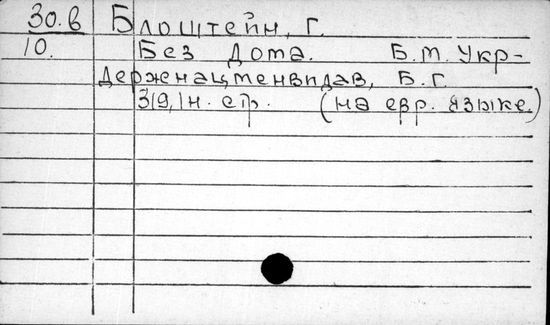 30.в Блоштейн, Г.
10. Без дома. Б.М. Укр-
держнацменвидав, Б.Г.
319, 1н. стр. (на евр. языке.)